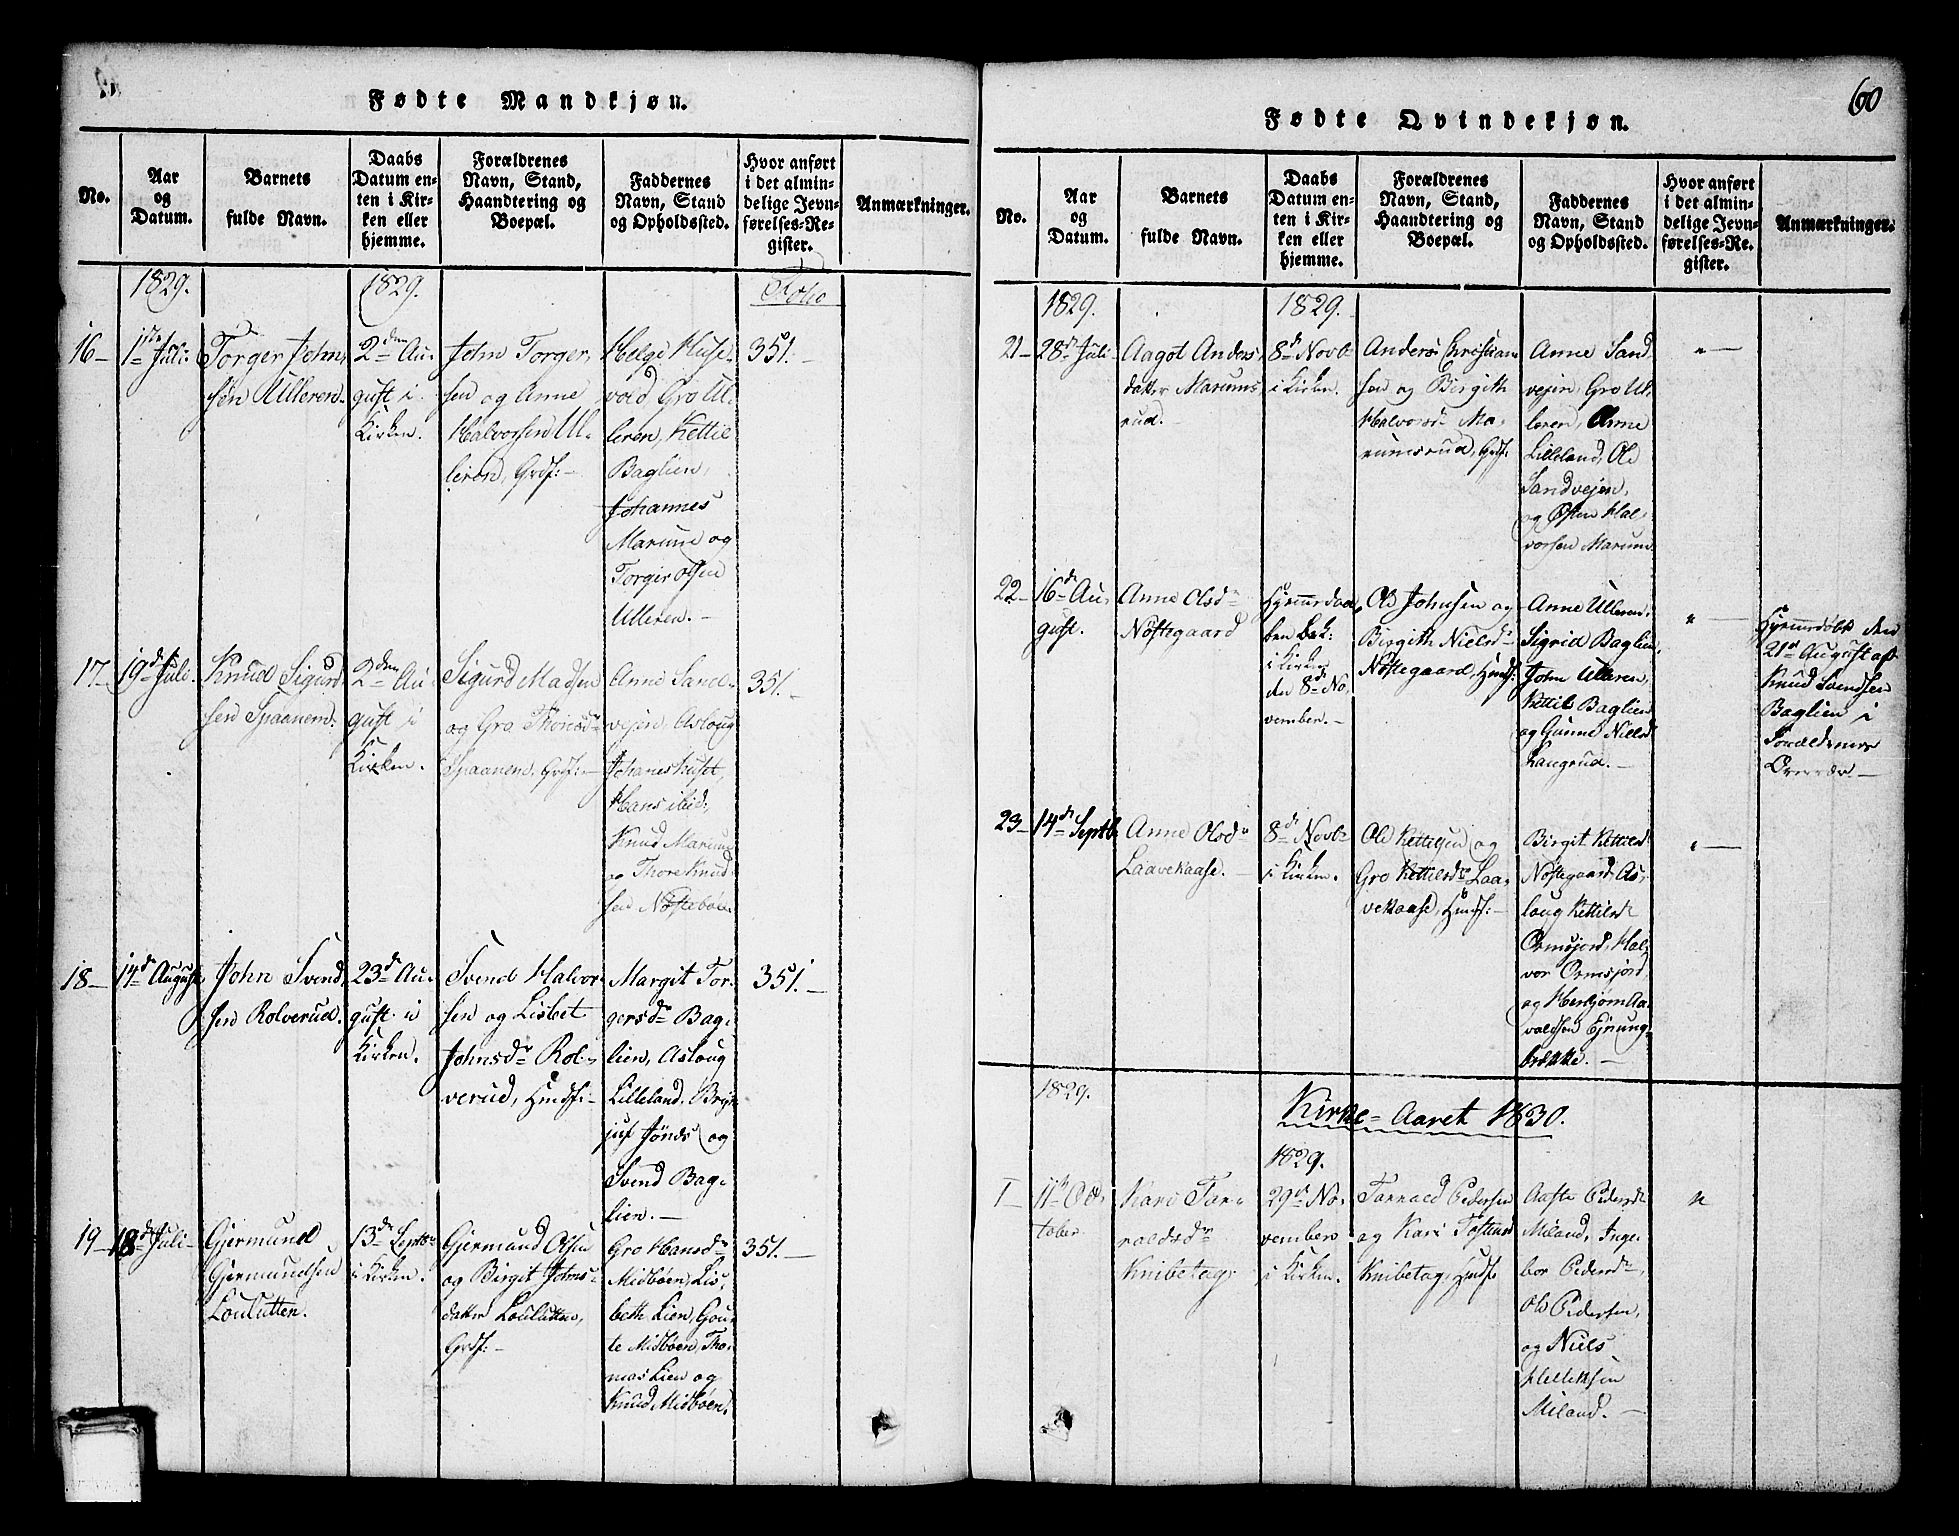 Fødte Mandkjøn.
No.
Aar
og
Datum.
Barnets
fulde Navn.
Daabs
Datum en-
ten i Kir-
ken eller
hjemme.
Forældrenes
Navn, Stand,
Haandtering og
Boepæl.
Faddernes
Navn, Stand
og Opholdssted.
Hvor anført
i det almin-
delige Jevn-
førelses-Re-
gister.
Anmærkninger.
1829.
1829.
Folio
16 –
1ste Juli
Torger John-
sen Ulleren.
2den Au-
gust i
Kirken.
John Torger-
sen og Anne
Halvorsen Ul-
leren, Grdf: –
Helge Huse-
vold, Gro Ul-
leren, Kettil
Baglien,
Johannes
Marum og
Torger Olsen
Ulleren. –
351. –
17 –
19d Juli
Knud Sigurd-
sen Spaanem.
2den Au-
gust i
Kirken.
Sigurd Madsen
og Gro Thorsdr
Spaanem, Grdf: –
Anne Sand-
vejen, Aslaug
Johaneshuset,
Hans ibid:,
Knud Marum
og Thore Knud-
sen Nøstebøe
351. –
18 –
14d August
John Svend-
sen Rolverud.
23d Au-
gust i
Kirken.
Svend Halvor-
sen og Lisbet
Johnsdr Rol-
verud, Hmdf: –
Margit Tor-
gersdr Bag-
lien, Asloug
Lilleland, Bryn-
juf Jønds og
Svend Bag-
lien. –
351. –
19 –
18d Juli –
Gjermund
Gjermundsen
Loulutten.
13d Septbr
i Kirken.
Gjermund Olsen
og Birgit Johns-
datter Loulutten,
Grdf: –
Gro Hansdr
Midbøen, Lis-
beth Lien, Gou-
te Midbøen, Tho-
mas Lien og
Knud Midbøen.
351. –
60
Fødte Qvindekjøn.
No.
Aar
og
Datum.
Barnets
fulde Navn.
Daabs
Datum en-
ten i Kir-
ken eller
hjemme.
Forældrenes
Navn, Stand,
Haandtering og
Boepæl.
Faddernes
Navn, Stand
og Opholdssted.
Hvor anført
i det almin-
delige Jevn-
førelses-Re-
gister.
Anmærkninger.
1829.
1829.
21 –
28d Juli
Aagot Anders-
datter Marums-
rud. –
8d Novbr
i Kirken.
Anders Christian-
sen og Birgith
Halvorsd. Ma-
rumsrud, Grdf:
Anne Sand-
vejen, Gro Ul-
leren, Anne
Lilleland, Ole
Sandvejen,
og Østen Hal-
vorsen Marum
" –
22 –
16d Au-
gust.
Anne Olsdr
Nøstegaard
Hjemmedaa-
ben bek:
i Kirken
den 8d No-
vember. –
Ole Johnsen og
Birgith Nielsdr
Nøstegaard, Hmdf:
Anne Ulleren,
Sigrid Baglien,
John Ulleren,
Kettil Baglien
og Gunne Nielsd
Langrud. –
" –
Hjemmedøbt den
21d August af
Knud Svendsen
Baglien i
Forældrenes
Overvær –
23 –
14d Septb.
Anne Olsdr
Laavekaase. –
8d Novbr
i Kirken.
Ole Kettilsen og
Gro Kettilsdr Laa-
vekaase, Hmdf: –
Birgit Kettilsd
Nøstegaard, As-
laug Kettilsd
Ormsjord, Hal-
vor Ormsjord
og Herbjørn Aa-
valdsen
brække. –
" –
1829.
Kirke-Aaret 1830.
1829.
I –
11te Oc-
tober
Kari Tar-
raldsdr
Knibetag.
29d No-
vember
i Kirken.
Tarrald Pedersen
og Kari Tostensd
Knibetag, Hmdf:
Aaste Pedersdr
Miland, Inge-
bor Pedersdr,
Ole Pedersen,
og Niels
Helleksen
Miland. –
"